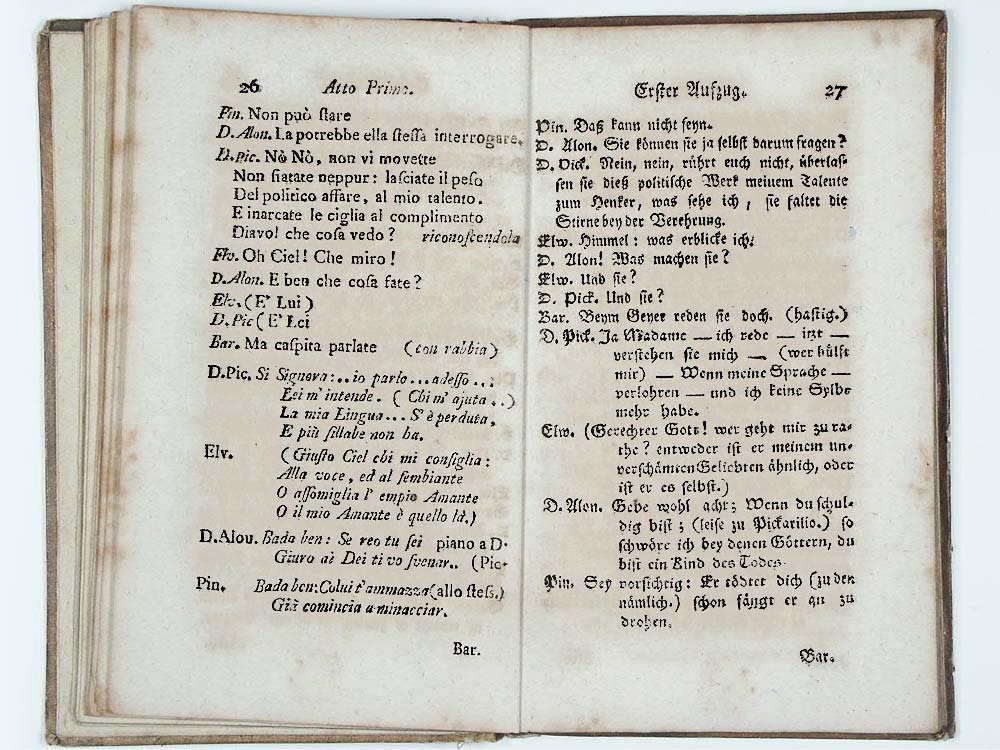 26 Atto Primo.
Pin. Non può ſtare
D. Alon. La potrebbe ella ſteſſa interrogare.
D. Pic. Nò Nò, non vi movete
Non fiatate neppur: laſciate il peſo
Del politico affare, al mio talento.
E inarcate le ciglia al complimento
Diavol che coſa vedo? riconoſcendola
Elv. Oh Ciel! Che miro!
D. Alon. E ben che coſa fate?
Elv. (E' Lui)
D. Pic (E' Lei
Bar. Ma caſpita parlate (con rabbia)
D. Pic. Si Signora:..io parlo...adeſſo..:
Lei m' intende. (Chi m' ajuta..)
La mia Lingua... S' è perduta,
E più ſillabe non ha.
Elv. (Giuſto Ciel chi mi conſiglia:
Alla voce, ed al ſembiante
O aſſomiglia l' empio Amante
O il mio Amante è quello là.)
D. Alou. Bada ben: Se reo tu ſei piano a D.
Giuro aè Dei ti vo ſvenar.. (Pic.
Pin. Bada ben: Colui t'ammazza (allo ſteſs.)
Già comincia a minacciar.
Bar.
Erſter Aufzug. 27
Pin. Daß kann nicht ſeyn.
D. Alon. Sie können ſie ja ſelbſt darum fragen?
D. Pick. Nein, nein, rührt euch nicht, überlaſ-
ſen ſie dieß politiſche Werk meinem Talente
zum Henker, was ſehe ich, ſie faltet die
Stirne bey der Verehrung.
Elw. Himmel: was erblicke ich;
D. Alon! Was machen ſie?
Elw. Und ſie?
D. Pick. Und ſie?
Bar. Beym Geyer reden ſie doch. (haſtig.)
D. Pick. Ja Madame — ich rede — itzt —
verſtehen ſie mich — (wer hülft
mir) — Wenn meine Sprache —
verlohren — und ich keine Sylbe
mehr habe.
Elw. (Gerechter Gott! wer geht mir zu ra-
the? entweder iſt er meinem un-
verſchämten Geliebten ähnlich, oder
iſt er es ſelbſt.)
D. Alon. Gebe wohl acht; Wenn du ſchul-
dig biſt; (leiſe zu Pickarilio.) ſo
ſchwöre ich bey denen Göttern, du
biſt ein Kind des Todes.
Pin. Sey vorſichtig: Er tödtet dich (zu den
nämlich.) ſchon fängt er an zu
drohen.
Bar.